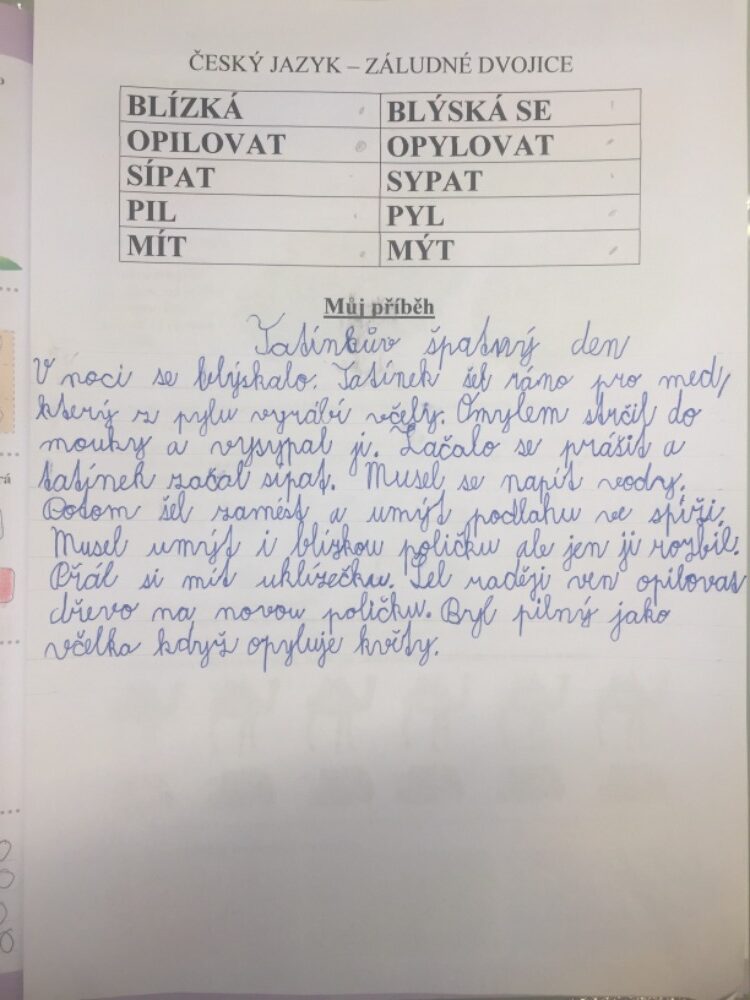 ČESKÝ JAZYK – ZÁLUDNÉ DVOJICE
BLÍZKÁ BLÝSKÁ SE
OPILOVAT OPYLOVAT
SÍPAT SYPAT
PIL PYL
MÍT MÝT
Můj příběh
Tatínkův špatný den
V noci se blýskalo. Tatínek šel ráno pro med,
který z pylu vyrábí včely. Omylem strčil do
mouky a vysypal ji. Začalo se prášit a
tatínek začal sípat. Musel se napít vody.
Potom šel zamést a umýt podlahu ve spíži.
Musel umýt i blízkou poličku ale jen ji rozbil.
Přál si mít uklízečku. Šel raději ven opilovat
dřevo na novou poličku. Byl pilný jako
včelka když opyluje květy.